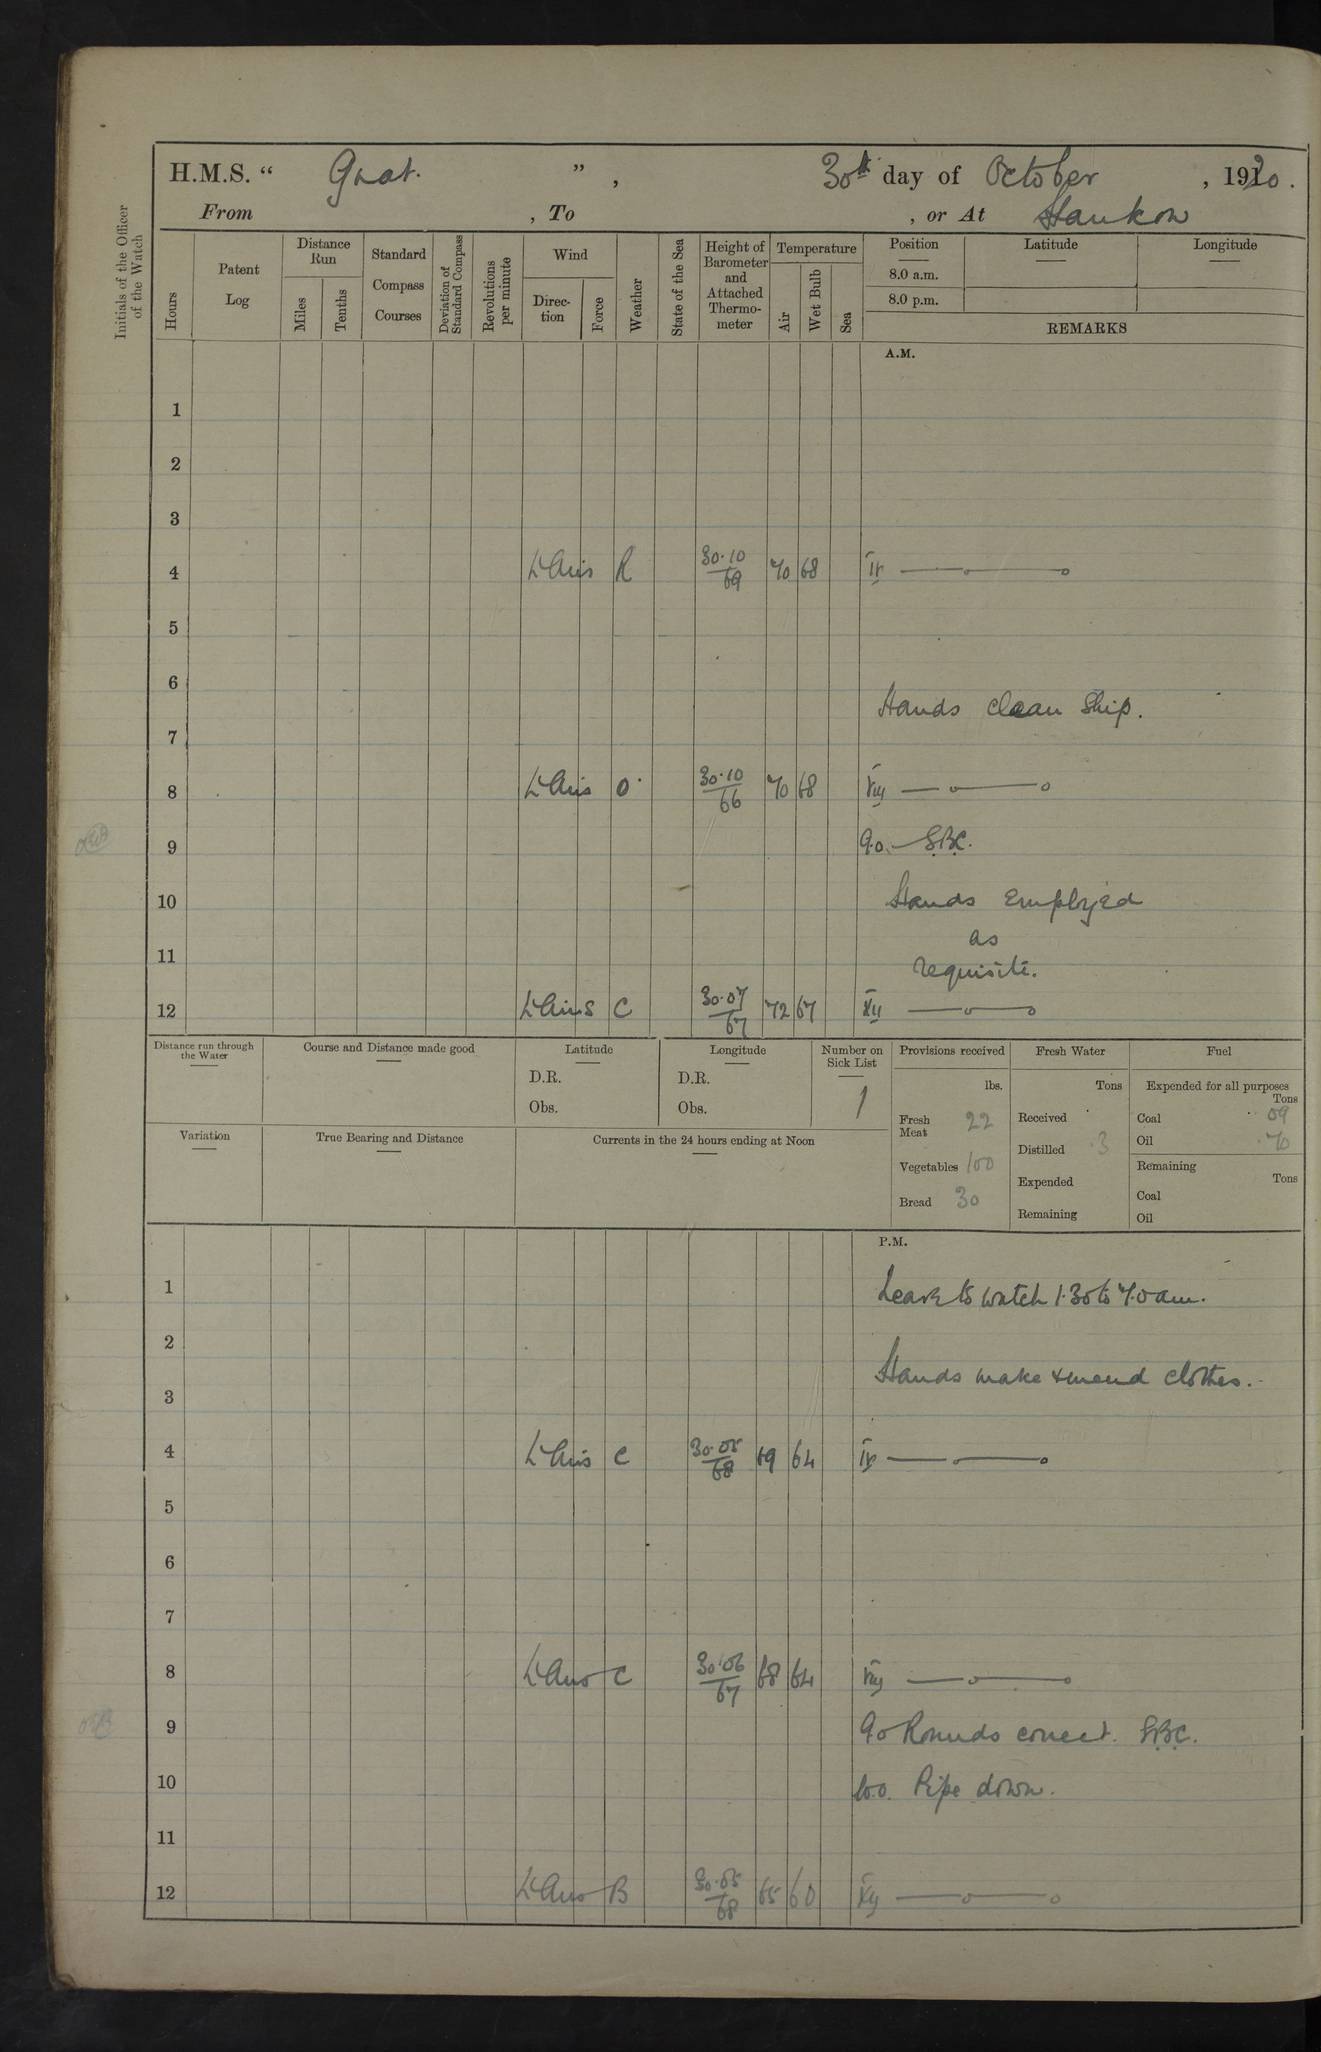 H.M.S. “ Gnat. ” , 30th day of October , 1920.
From , To , or At Hankow
Initials of the Officer of the Watch
Hours
Patent Log
Distance Run
Miles
Tenths
Standard Compass Courses
Deviation of Standard Compass
Revolutions per minute
Wind
Direc-tion
Force
Weather
State of the Sea
Height of Barometer and Attached Thermo-meter
Temperature
Air
Wet Bulb
Sea
Position
Latitude
Longitude
8.0 a.m.
8.0 p.m.
REMARKS
A.M.
1
2
3
4 Lt Airs R 30.10/69 70 68 IV
5
6
Hands clean Ship.
7
8 Lt Airs O 30.10/66 70 68 VIII
9 9.0 S.B.C.
10 Hands Employed
as
11 requisite.
12 Lt Airs C 30.07/67 72 67 XII
Distance run through the Water
Course and Distance made good
Latitude
D.R.
Obs.
Longitude
D.R.
Obs.
Number on Sick List
1
Provisions received
lbs.
Fresh Meat 22
Vegetables 100
Bread 30
Fresh Water
Tons
Received
Distilled .3
Expended
Remaining
Fuel
Expended for all purposes
Tons
Coal .09
Oil .70
Remaining
Tons
Coal
Oil
Variation
True Bearing and Distance
Currents in the 24 hours ending at Noon
P.M.
1 Leave to watch 1.30 to 7.0 am.
2
Hands make & mend clothes.
3
4 Lt Airs C 30.05/68 69 64 IV
5
6
7
8 Lt Airs C 30.06/67 68 64 VIII
9 9.0 Rounds correct. S.B.C.
10 10.0. Pipe down.
11
12 Lt Airs B 30.05/68 65 60 XII